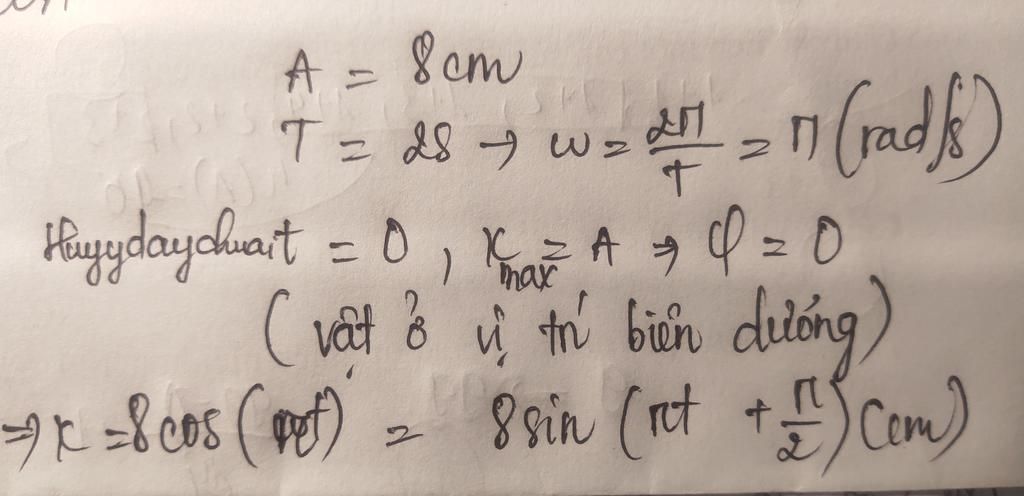 A = 8cm
T = 2s → ω = 2π/T = π (rad/s)
t = 0, x max = A → φ = 0
(vật ở vị trí biên dương)
⇒ x = 8cos(πt) = 8sin(πt + π/2) (cm)